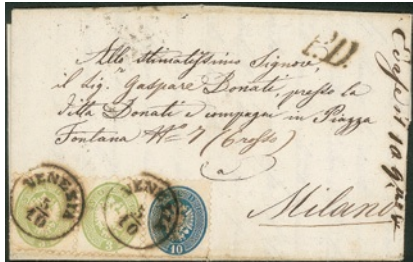 P.D.
Allo stimatissimo Signore,
il Sig. Gaspare Donati, presso la
Ditta Donati e compagni in Piazza
Fontana Nº 7 (Grosso)
a
Milano
VENEZIA
5/10
VENEZIA
5/10
3
3
10